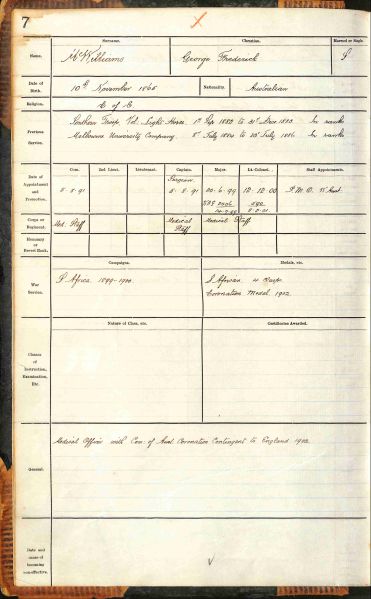 7
Surname. Christian. Married or Single
Name. McWilliams George Frederick S
Date of Birth. 10th November 1865 Nationality. Australian
Religion. C of E.
Previous Service.
Southern Troop Vol. Light Horse 1st Sep 1882 to 31st Dec 1883 In ranks
Melbourne University Company. July 1884 to July 1886 In ranks
Date of Appointment and Promotion.
Com. 2nd Lieut. Lieutenant. Captain. Major. Lt.-Colonel. Staff Appointments.
Surgeon
5.8.91 5.8.91 20.6.99 12.12.00 P.M.O.
Corps or Regiment. Med. Staff Medical Staff Medical Staff
Honorary or Brevet Rank.
Campaigns. Medals, etc.
War Service.
S Africa 1899-1900 S African 4 Clasp
Coronation Medal 1902.
Nature of Class, etc. Certificates Awarded.
Classes of Instruction, Examination, Etc.
General.
Medical Officer with Com. of Aust Coronation Contingent to England 1902
Date and cause of becoming non-effective.